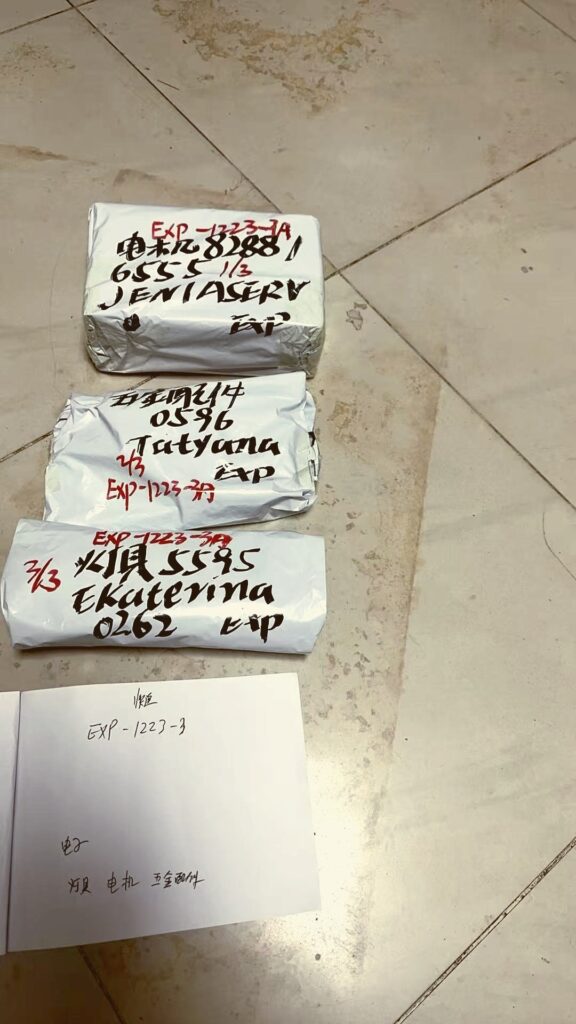 EXP-1223-3A
电机82881
6555 1/3
JENIASERV
EXP
五金配件
0596
Tatyana
2/3 Exp
EXP-1223-3A
EXP-1223-3A
3/3 灯具5595
Ekaterina
0262 Exp
EXP-1223-3
电子
灯具 电机 五金配件